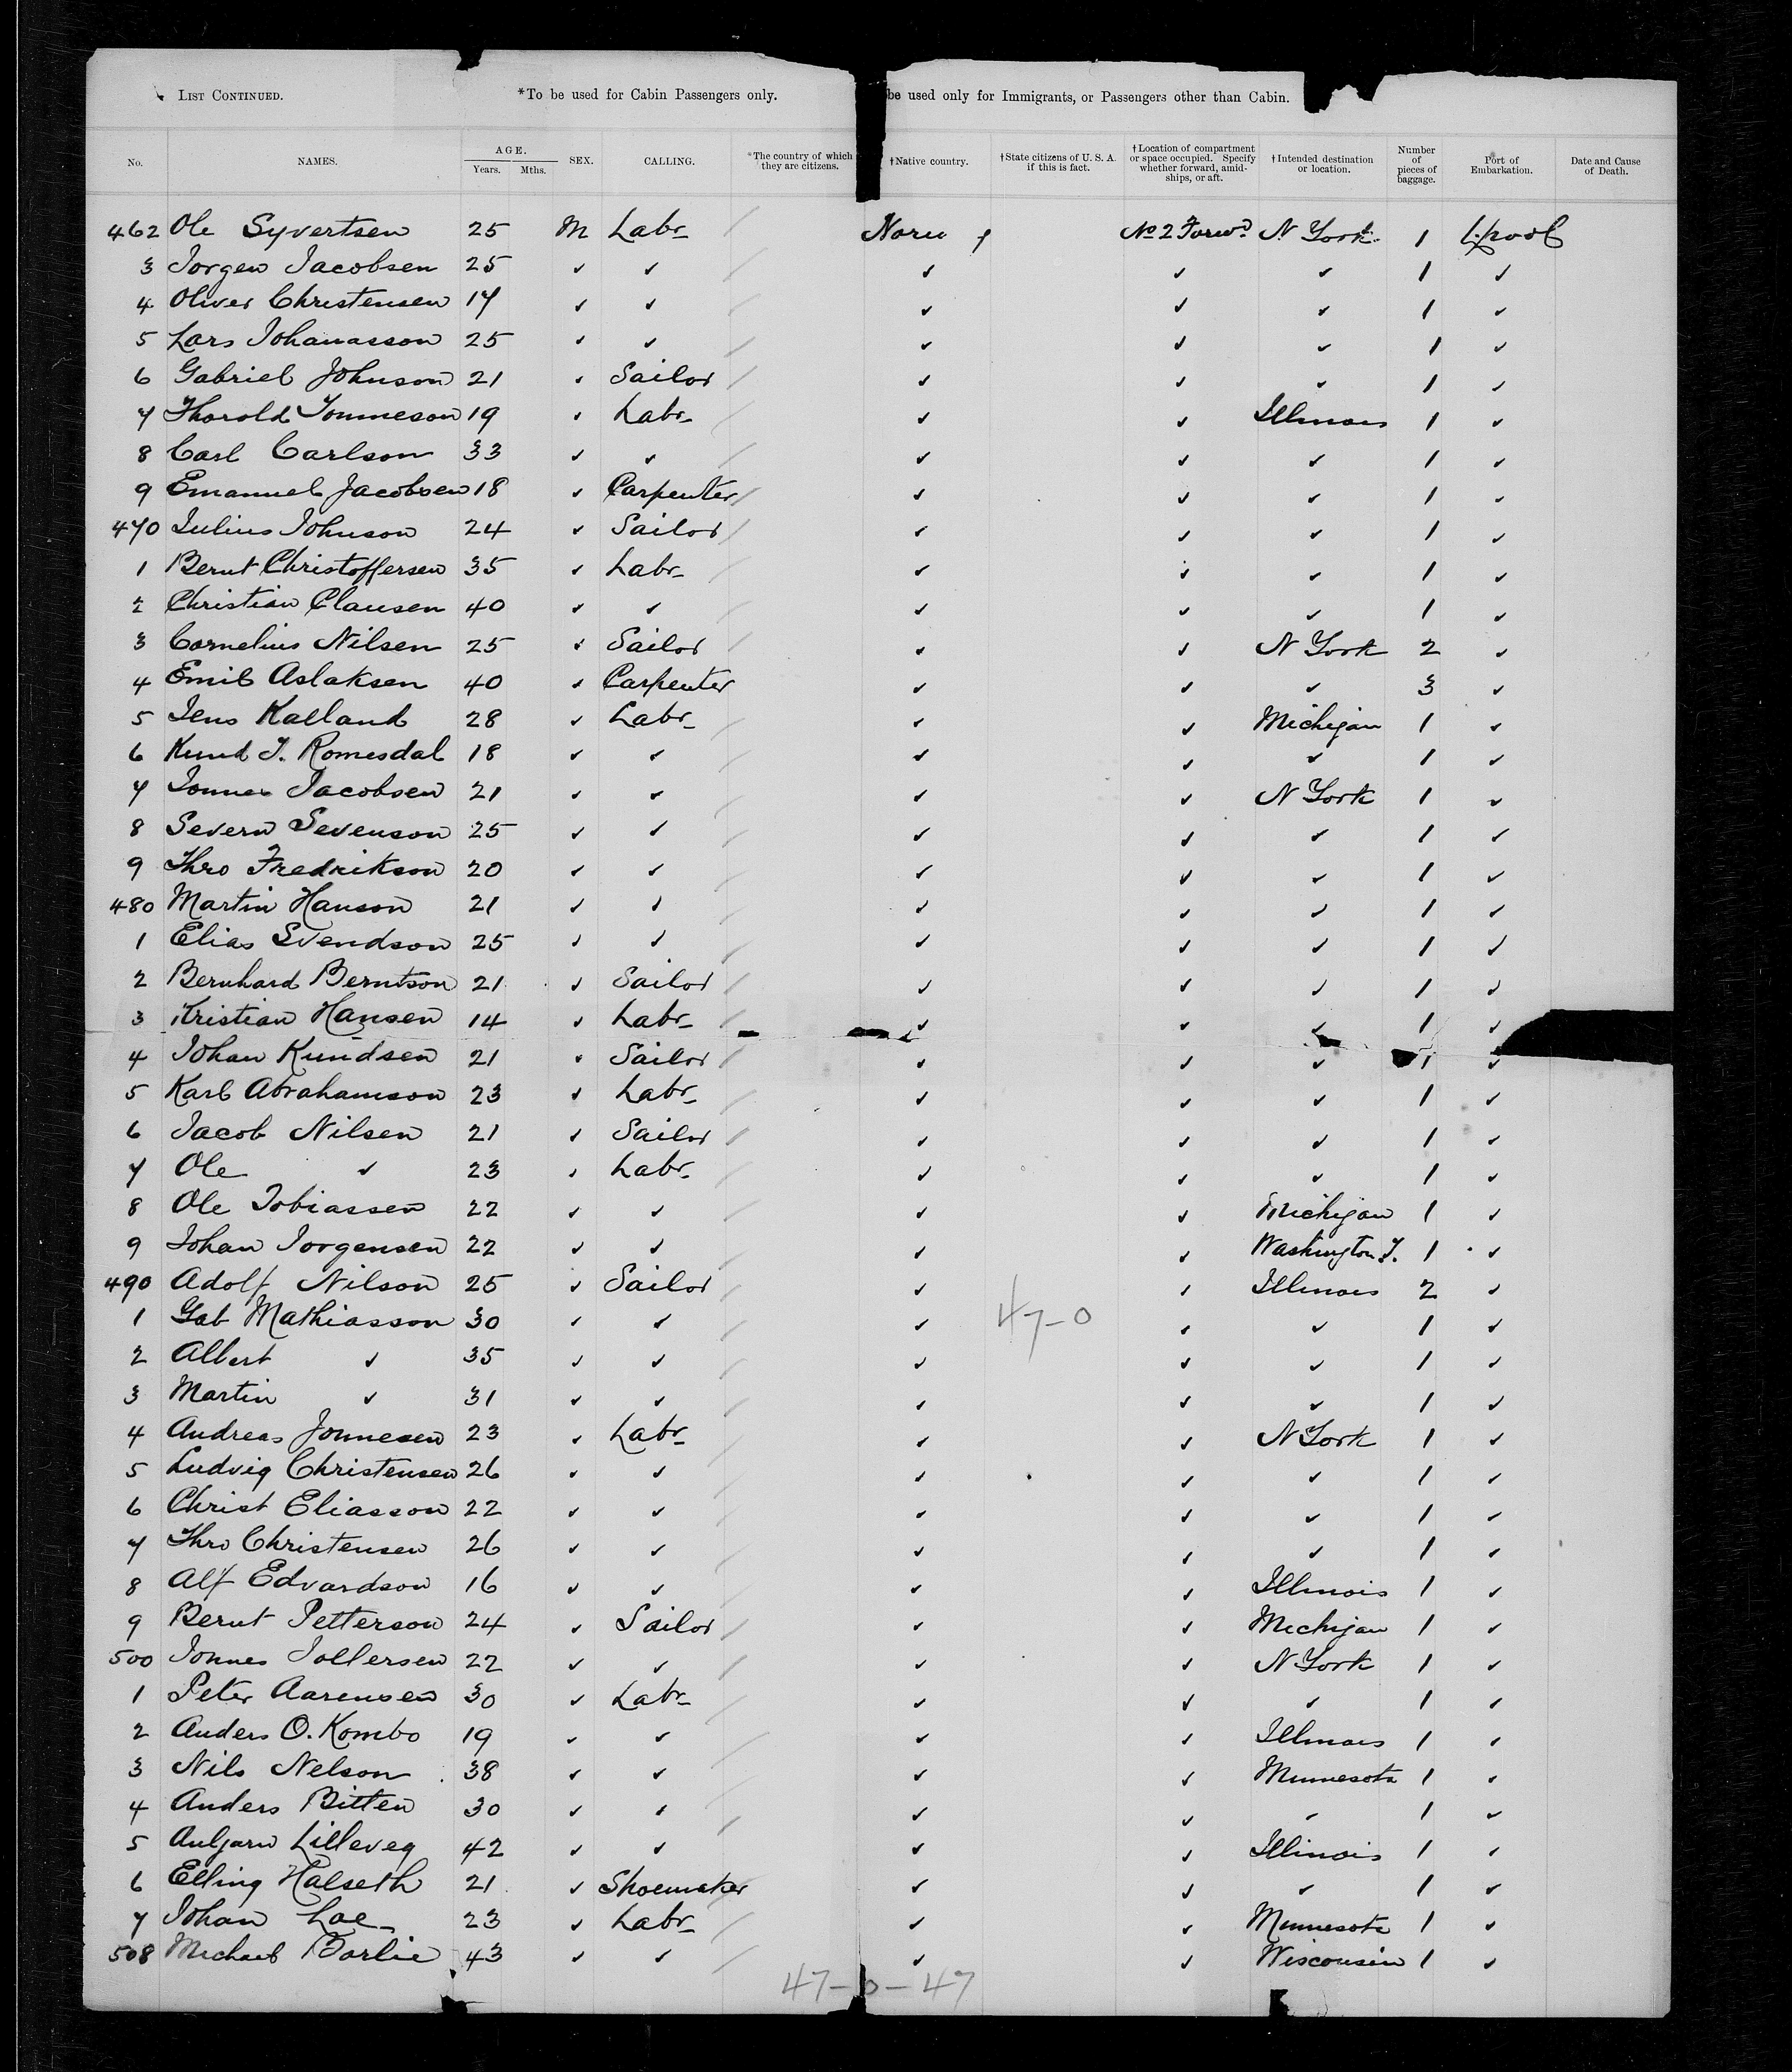 List Continued. *To be used for Cabin Passengers only. be used only for Immigrants, or Passengers other than Cabin.
No. NAMES. AGE. Years. Mths. SEX. CALLING. *The country of which they are citizens. †Native country. †State citizens of U. S. A. if this is fact. †Location of compartment or space occupied. Specify whether forward, amidships, or aft. †Intended destination or location. Number of pieces of baggage. Port of Embarkation. Date and Cause of Death.
462 Ole Syvertsen 25 M Labr Norw y No 2 Forwd N York 1 L'pool
3 Jorgen Jacobsen 25 ✓ ✓ ✓ ✓ ✓ 1 ✓
4 Oliver Christensen 17 ✓ ✓ ✓ ✓ ✓ 1 ✓
5 Lars Johanasson 25 ✓ ✓ ✓ ✓ ✓ 1 ✓
6 Gabriel Johnson 21 ✓ Sailor ✓ ✓ ✓ 1 ✓
7 Thorold Tonneson 19 ✓ Labr ✓ ✓ Illinois 1 ✓
8 Carl Carlson 33 ✓ ✓ ✓ ✓ ✓ 1 ✓
9 Emanuel Jacobsen 18 ✓ Carpenter ✓ ✓ ✓ 1 ✓
470 Julius Johnson 24 ✓ Sailor ✓ ✓ ✓ 1 ✓
1 Bernt Christoffersen 35 ✓ Labr ✓ ✓ ✓ 1 ✓
2 Christian Clausen 40 ✓ ✓ ✓ ✓ ✓ 1 ✓
3 Cornelius Nilsen 25 ✓ Sailor ✓ ✓ N York 2 ✓
4 Emil Aslaksen 40 ✓ Carpenter ✓ ✓ ✓ 3 ✓
5 Jens Kalland 28 ✓ Labr ✓ ✓ Michigan 1 ✓
6 Knud T. Romesdal 18 ✓ ✓ ✓ ✓ ✓ 1 ✓
7 Tonnes Jacobsen 21 ✓ ✓ ✓ ✓ N York 1 ✓
8 Severn Sevenson 25 ✓ ✓ ✓ ✓ ✓ 1 ✓
9 Thro Fredrikson 20 ✓ ✓ ✓ ✓ ✓ 1 ✓
480 Martin Hanson 21 ✓ ✓ ✓ ✓ ✓ 1 ✓
1 Elias Svendson 25 ✓ ✓ ✓ ✓ ✓ 1 ✓
2 Bernhard Berntson 21 ✓ Sailor ✓ ✓ ✓ 1 ✓
3 Kristian Hansen 14 ✓ Labr ✓ ✓ ✓ 1 ✓
4 Johan Kundsen 21 ✓ Sailor ✓ ✓ ✓ 1 ✓
5 Karl Abrahamson 23 ✓ Labr ✓ ✓ ✓ 1 ✓
6 Jacob Nilsen 21 ✓ Sailor ✓ ✓ ✓ 1 ✓
7 Ole ✓ 23 ✓ Labr ✓ ✓ ✓ 1 ✓
8 Ole Tobiassen 22 ✓ ✓ ✓ ✓ Michigan 1 ✓
9 Johan Jorgensen 22 ✓ ✓ ✓ ✓ Washington T. 1 ✓
490 Adolf Nilson 25 ✓ Sailor ✓ ✓ Illinois 2 ✓
1 Gab Mathiasson 30 ✓ ✓ ✓ 47-0 ✓ ✓ 1 ✓
2 Albert ✓ 35 ✓ ✓ ✓ ✓ ✓ 1 ✓
3 Martin ✓ 31 ✓ ✓ ✓ ✓ ✓ 1 ✓
4 Andreas Jonnesen 23 ✓ Labr ✓ ✓ N York 1 ✓
5 Ludvig Christensen 26 ✓ ✓ ✓ ✓ ✓ 1 ✓
6 Christ Eliasson 22 ✓ ✓ ✓ ✓ ✓ 1 ✓
7 Thro Christensen 26 ✓ ✓ ✓ ✓ ✓ 1 ✓
8 Alf Edvardson 16 ✓ ✓ ✓ ✓ Illinois 1 ✓
9 Bernt Petterson 24 ✓ Sailor ✓ ✓ Michigan 1 ✓
500 Tonnes Tollersen 22 ✓ ✓ ✓ ✓ N York 1 ✓
1 Peter Aarensen 30 ✓ Labr ✓ ✓ ✓ 1 ✓
2 Anders O. Kombo 19 ✓ ✓ ✓ ✓ Illinois 1 ✓
3 Nils Nelson 38 ✓ ✓ ✓ ✓ Minnesota 1 ✓
4 Anders Bitten 30 ✓ ✓ ✓ ✓ ✓ 1 ✓
5 Lilleveg 42 ✓ ✓ ✓ ✓ Illinois 1 ✓
6 Elling Halseth 21 ✓ Shoemaker ✓ ✓ ✓ 1 ✓
7 Johan Loe 23 ✓ Labr ✓ ✓ Minnesota 1 ✓
508 Michael Borlie 43 ✓ ✓ ✓ ✓ Wisconsin 1 ✓
47-0-47